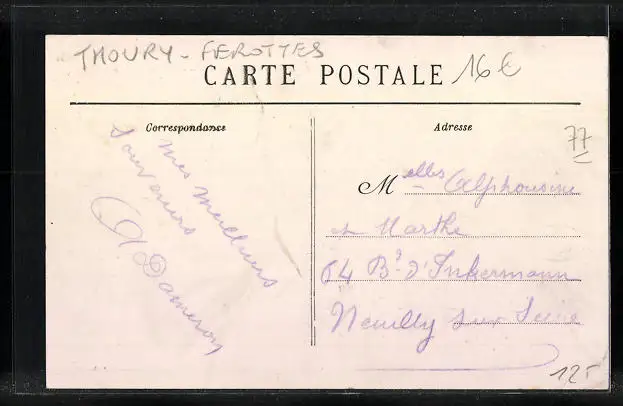 THOURY - FEROTTES
CARTE POSTALE
16€
Correspondance
Adresse
77
Mes Meilleurs
Souvenirs
Dameron
Melles Alphonsine
et Marthe
64 Bd d'Inkermann
Neuilly sur Seine
12F